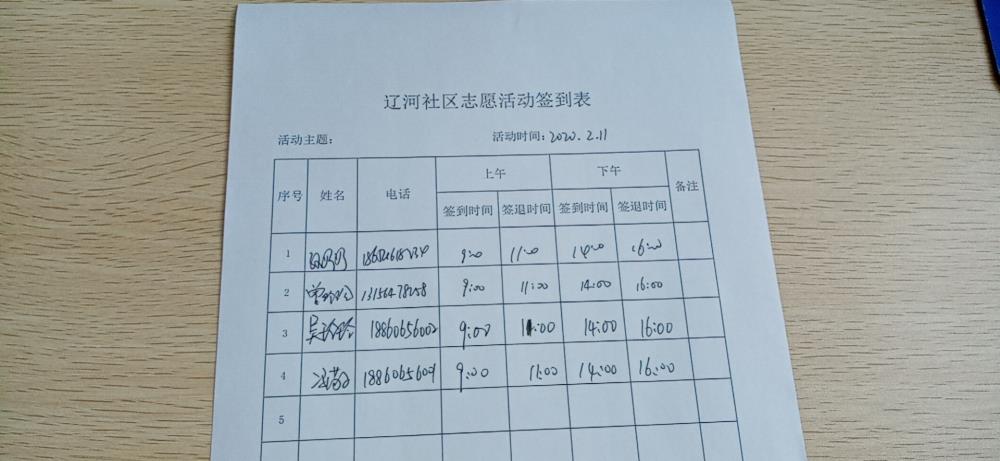 辽河社区志愿活动签到表
活动主题: 活动时间: 2020.2.11
序号 姓名 电话 上午 下午 备注
签到时间 签退时间 签到时间 签退时间
1 9:00 11:00 14:00 16:00
2 9:00 11:00 14:00 16:00
3 吴玲玲 18860656002 9:00 11:00 14:00 16:00
4 9:00 11:00 14:00 16:00
5